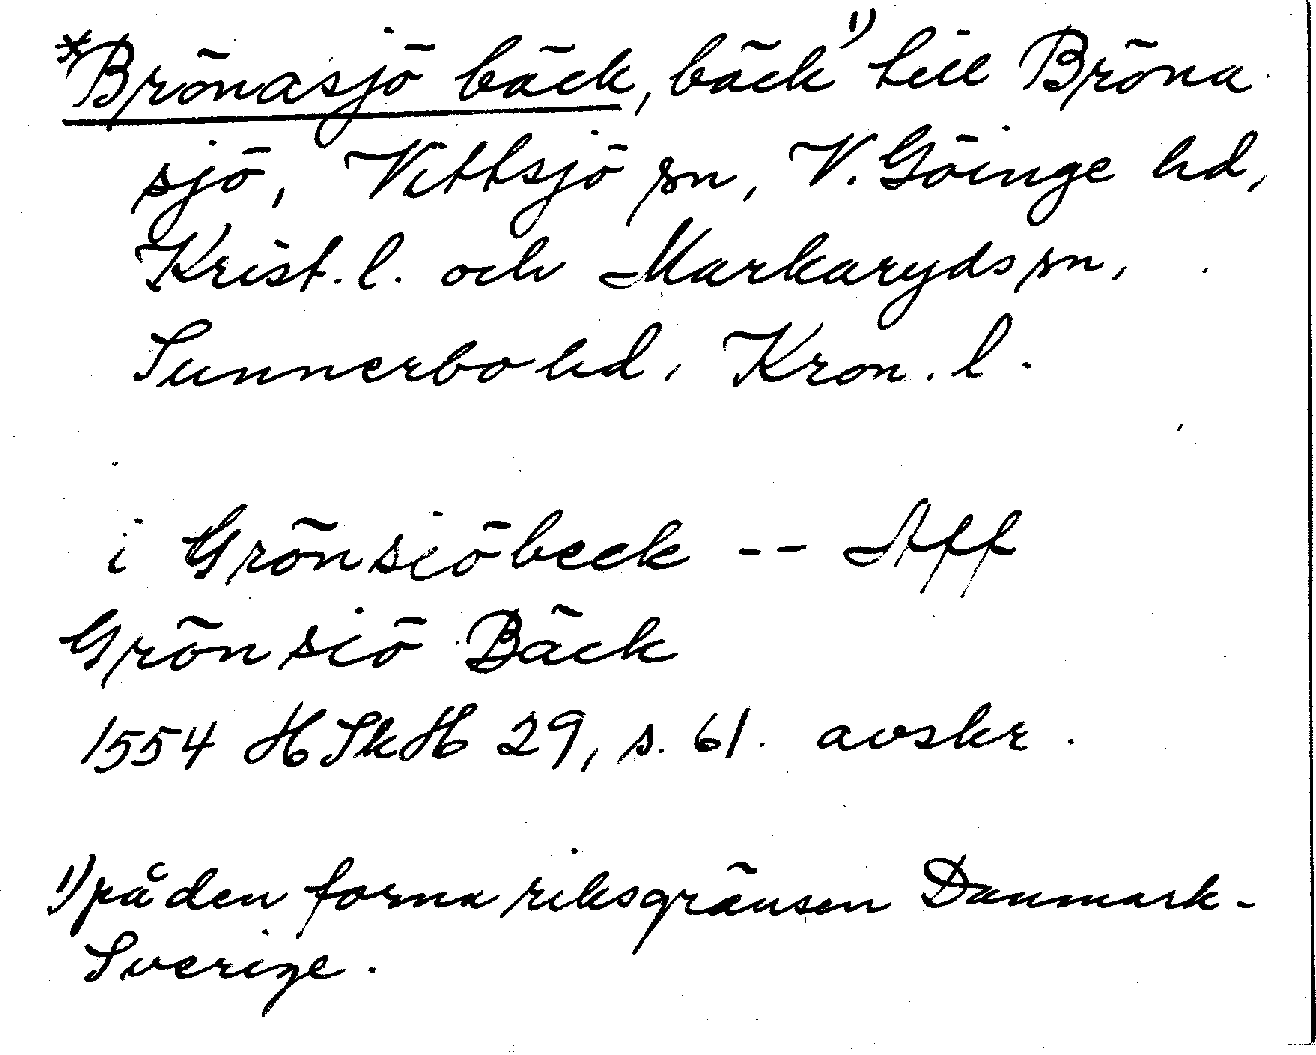 *Brönasjö bäck, bäck¹⁾ till Bröna
sjö, Vittsjö sn, V. Göinge hd,
Krist. l. och Markaryds sn,
Sunnerbo hd, Kron. l.
i Grönsiöbeck -- Aff
Grönsiö Bäck
1554 HSkH 29, s. 61. avskr.
¹⁾ på den forna riksgränsen Danmark-
Sverige.